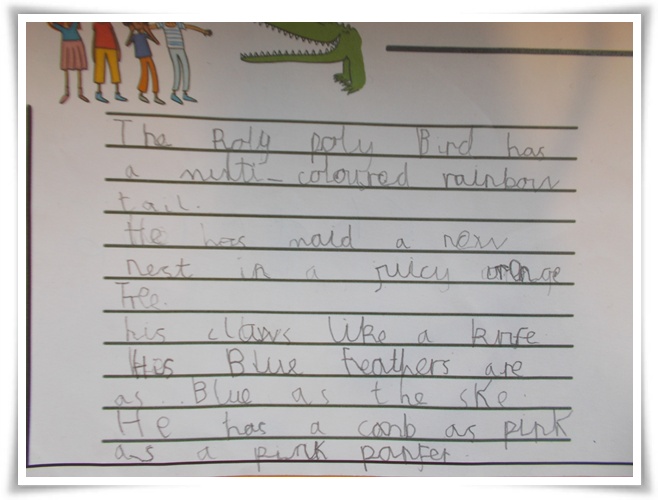 The Roly poly Bird has
a multi-coloured rainbow
tail.
He has maid a new
nest in a juicy orenge
Tree.
his claws like a knife
His Blue feathers are
as Blue as the ske.
He has a comb as pink
as a pink panfer.